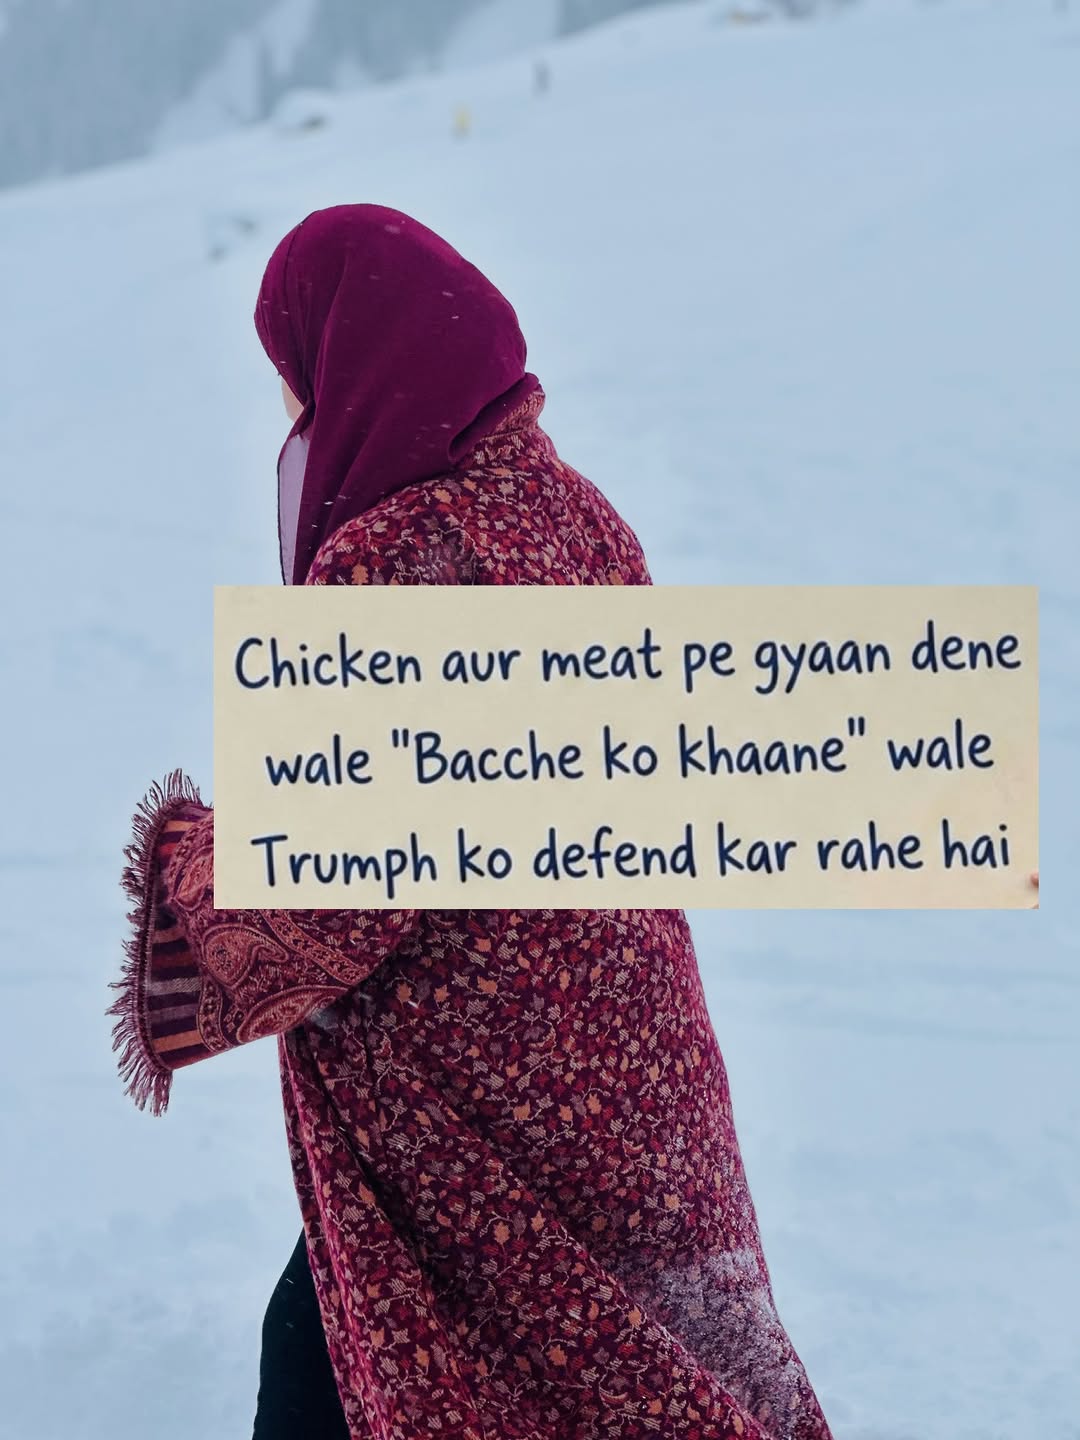 Chicken aur meat pe gyaan dene
wale "Bacche ko khaane" wale
Trumph ko defend kar rahe hai